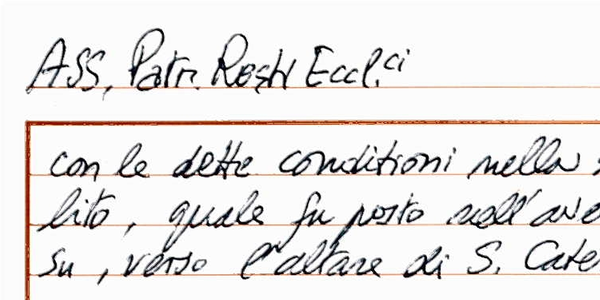 ASS, Patr. Restri Eccl.ci
con le dette conditioni nella
lito, quale fu posto nell'
su, verso l'altare di S. Cate